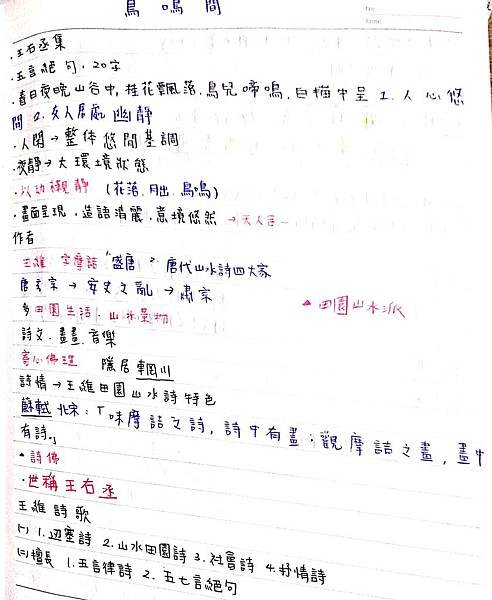 鳥鳴間
·王右丞集
·五言絕句,20字
·春日夜晚山谷中,桂花飄落,鳥兒啼鳴,白描中呈 1. 人心悠
閒 2. 友人居處幽靜
·人閑→整体悠閒基調
·夜靜→大環境狀態
·以動襯靜 (花落、月出、鳥鳴)
·畫面呈現·造語清麗·意境悠然→天人合一
作者
王維 字摩詰 "盛唐" 唐代山水詩四大家
唐玄宗→安史之亂→肅宗
▲田園山水派
多田園生活·山水景物
詩文、畫畫、音樂
寄心佛理 隱居輞川
詩情→王維田園山水詩特色
蘇軾 北宋:「味摩詰之詩,詩中有畫;觀摩詰之畫,畫中
有詩。」
▲詩佛
·世稱王右丞
王維詩歌
(一) 1.邊塞詩 2.山水田園詩 3.社會詩 4.抒情詩
(二)擅長 1.五言律詩 2. 五七言絕句